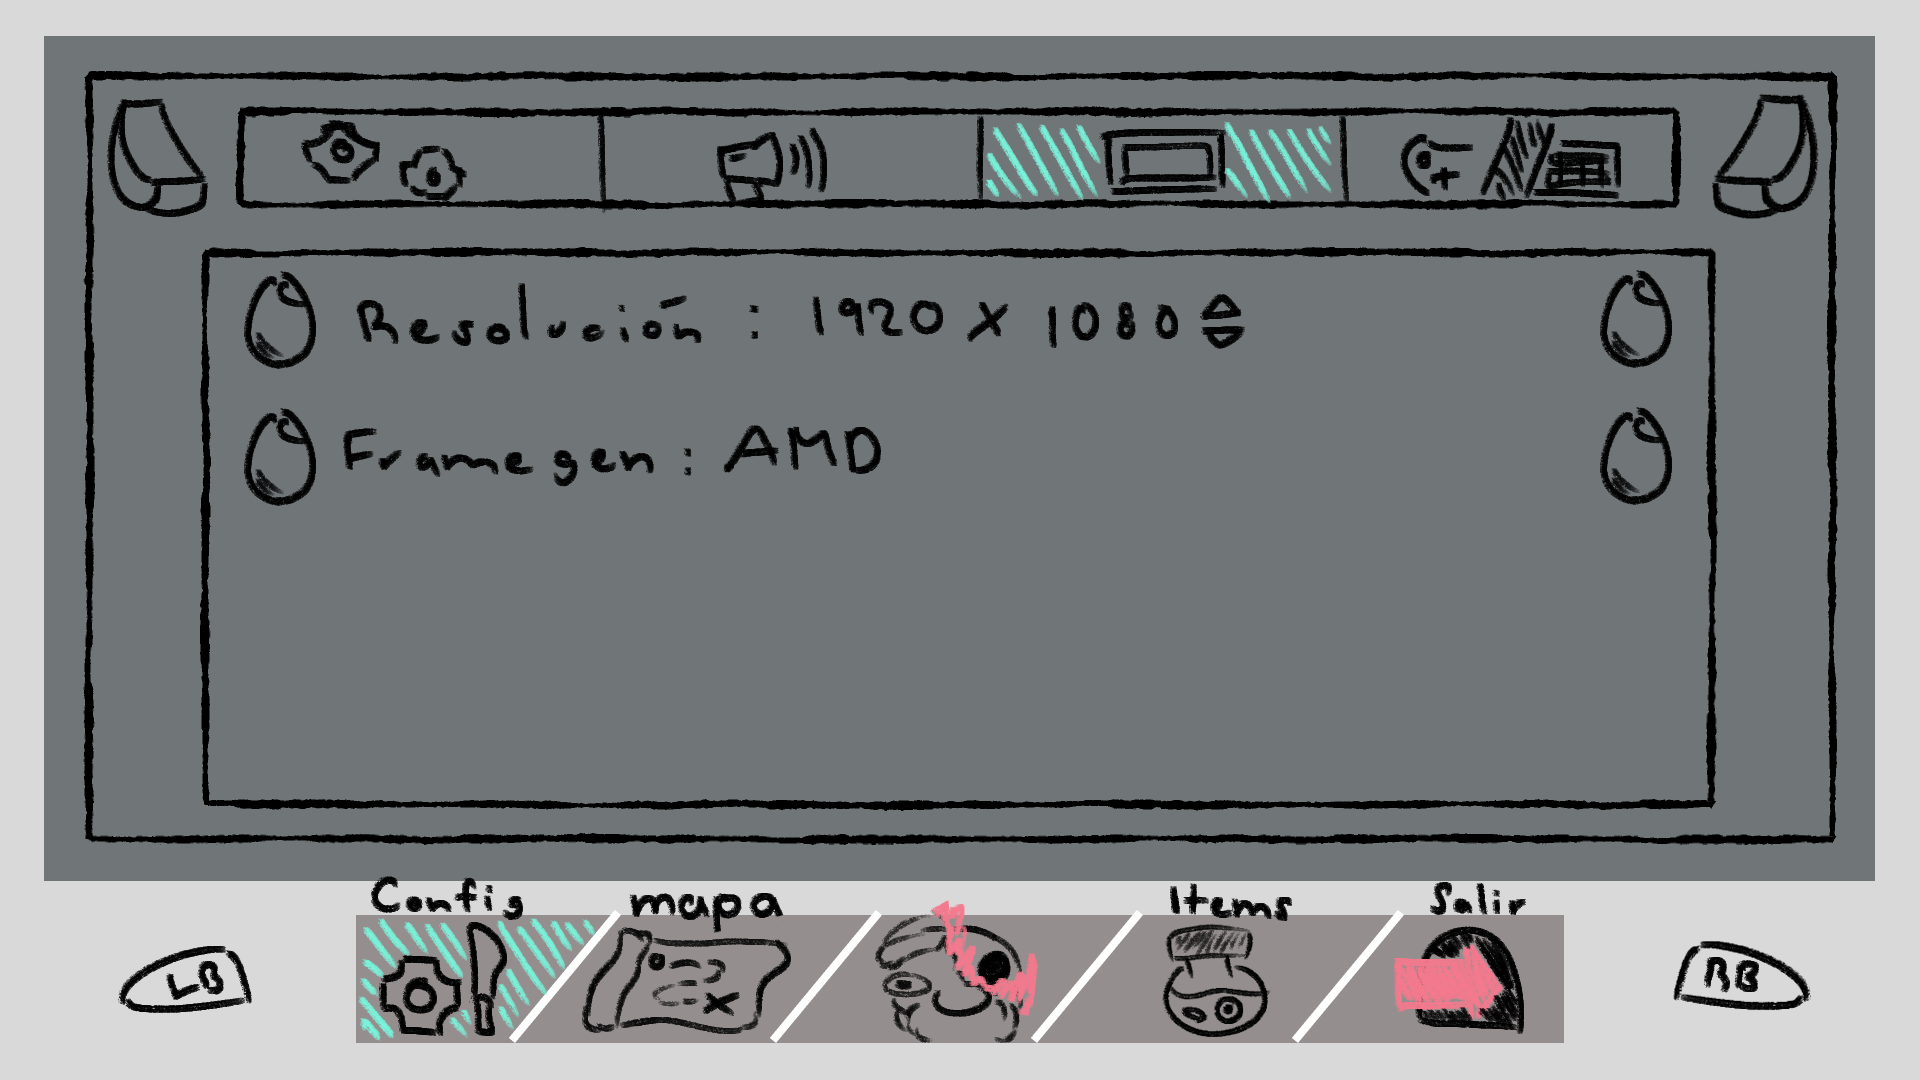 Resolución : 1920 X 1080
Framegen : AMD
Config
mapa
Items
Salir
LB
RB